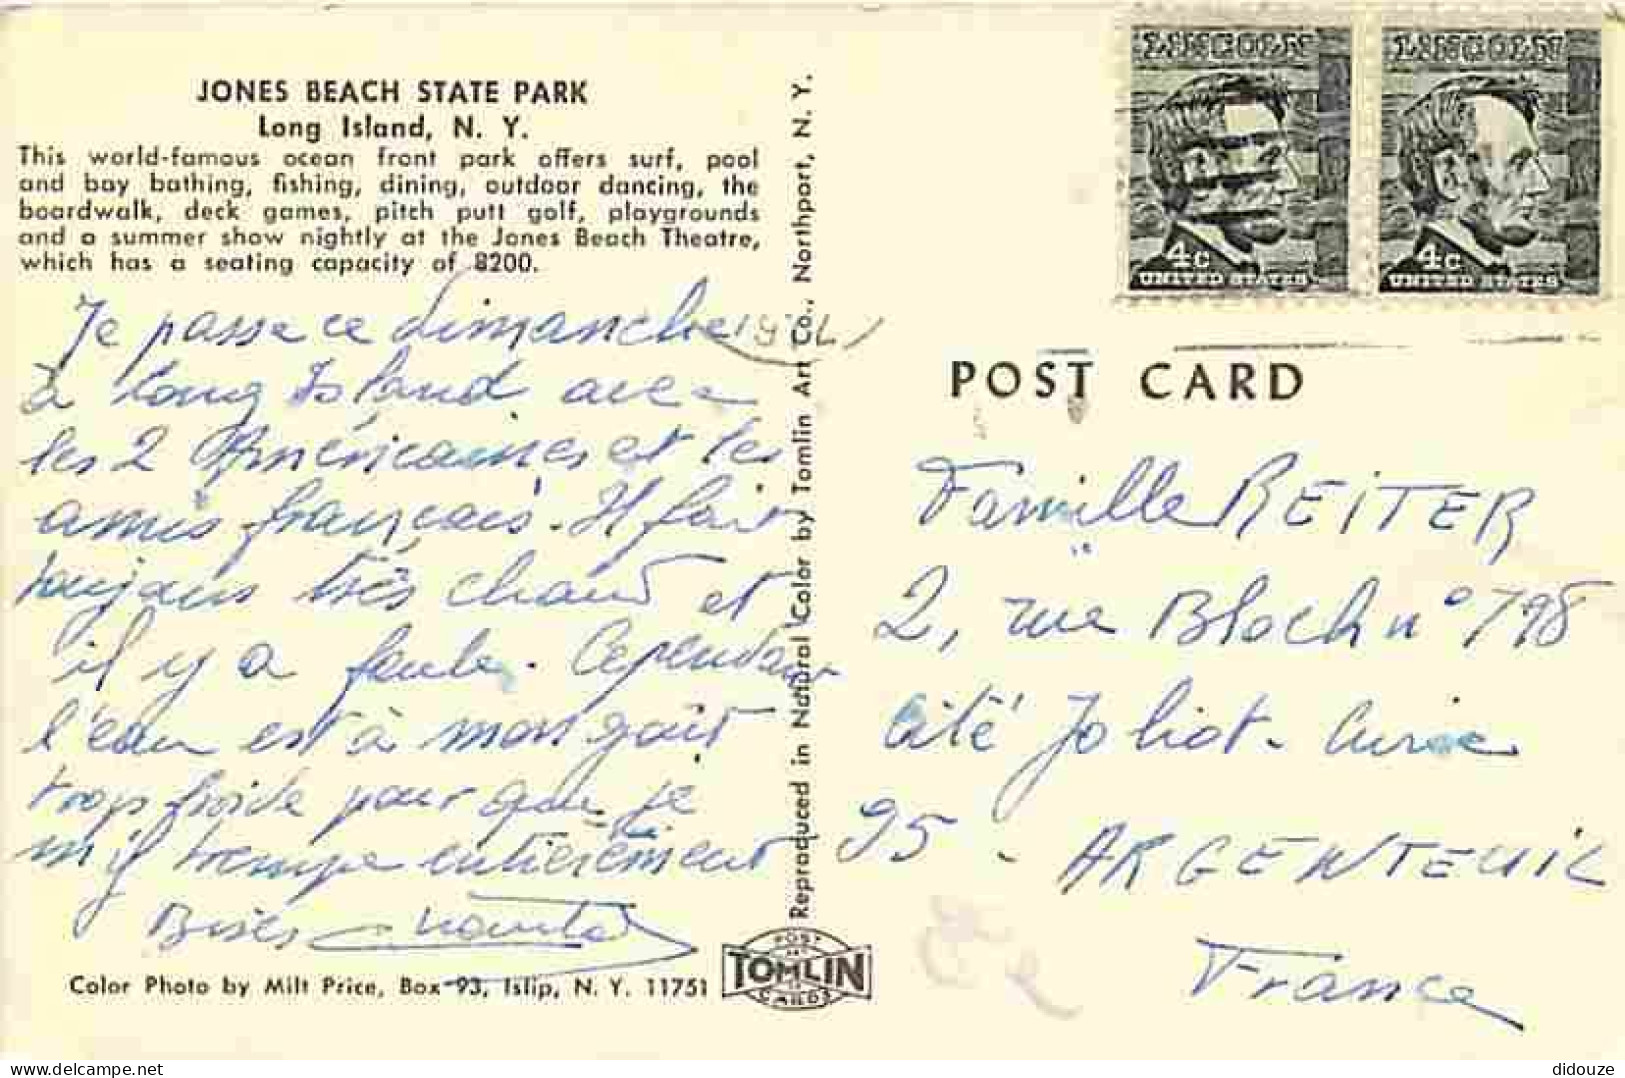 JONES BEACH STATE PARK
Long Island, N. Y.
This world-famous ocean front park offers surf, pool
and bay bathing, fishing, dining, outdoor dancing, the
boardwalk, deck games, pitch putt golf, playgrounds
and a summer show nightly at the Jones Beach Theatre,
which has a seating capacity of 8200.
Je passe ce dimanche
à Long Island avec
les 2 Américaines et les
amis français. Il fait
toujours très chaud et
il y a foule. Cependant
l'eau est à mon goût
trop froide pour que je
m'y trempe entièrement
Bises
Color Photo by Milt Price, Box 93, Islip, N. Y. 11751
Reproduced in Natural Color by Tomlin Art Co., Northport, N. Y.
POST
TOMLIN
CARDS
LINCOLN
4c
UNITED STATES
LINCOLN
4c
UNITED STATES
POST CARD
Famille REITER
2, rue Bloch n° 798
Cité Joliot-Curie
95 - ARGENTEUIL
France
delcampe.net
didouze